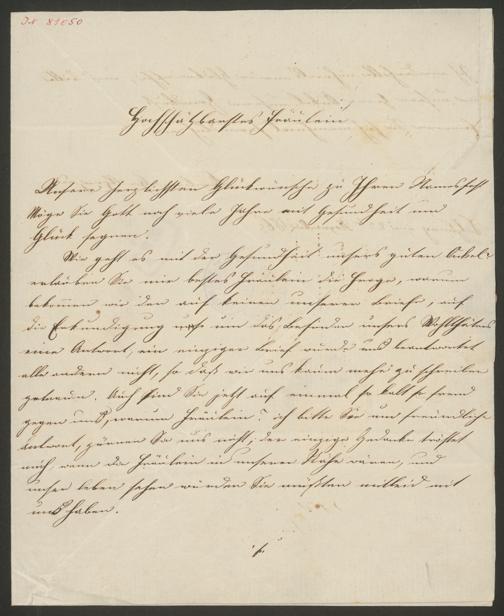 JN 81050
Hochschätzbarstes Fräulein
Unsere herzlichsten Glückwünsche zu Ihren Namensfest
Möge Sie Gott noch viele Jahre mit Gesundheit und
Glück segnen.
Wie geht es mit der Gesundheit unsers guten Onkels
erlauben Sie mir bestes Fräulein die Frage, warum
bekommen wir den auf keinen unserer Briefe, auf
die Erkundigung um das Befinden unsers Wohlthäters
eine Antwort, ein einziger Brief wurde uns beantwortet
alle andern nicht, so daß wir uns kaum mehr zu schreiben
getrauen. Auch sind Sie jetzt auf einmal so kalt so fremd
gegen uns, warum Fräulein? ich bitte Sie um freundliche
Antwort, zürnen Sie uns nicht, der einzige Gedanke tröstet
mich, wenn das Fräulein in unserer Nähe wären, und
unser leben sehen würden Sie müßten mitleid mit
uns haben.